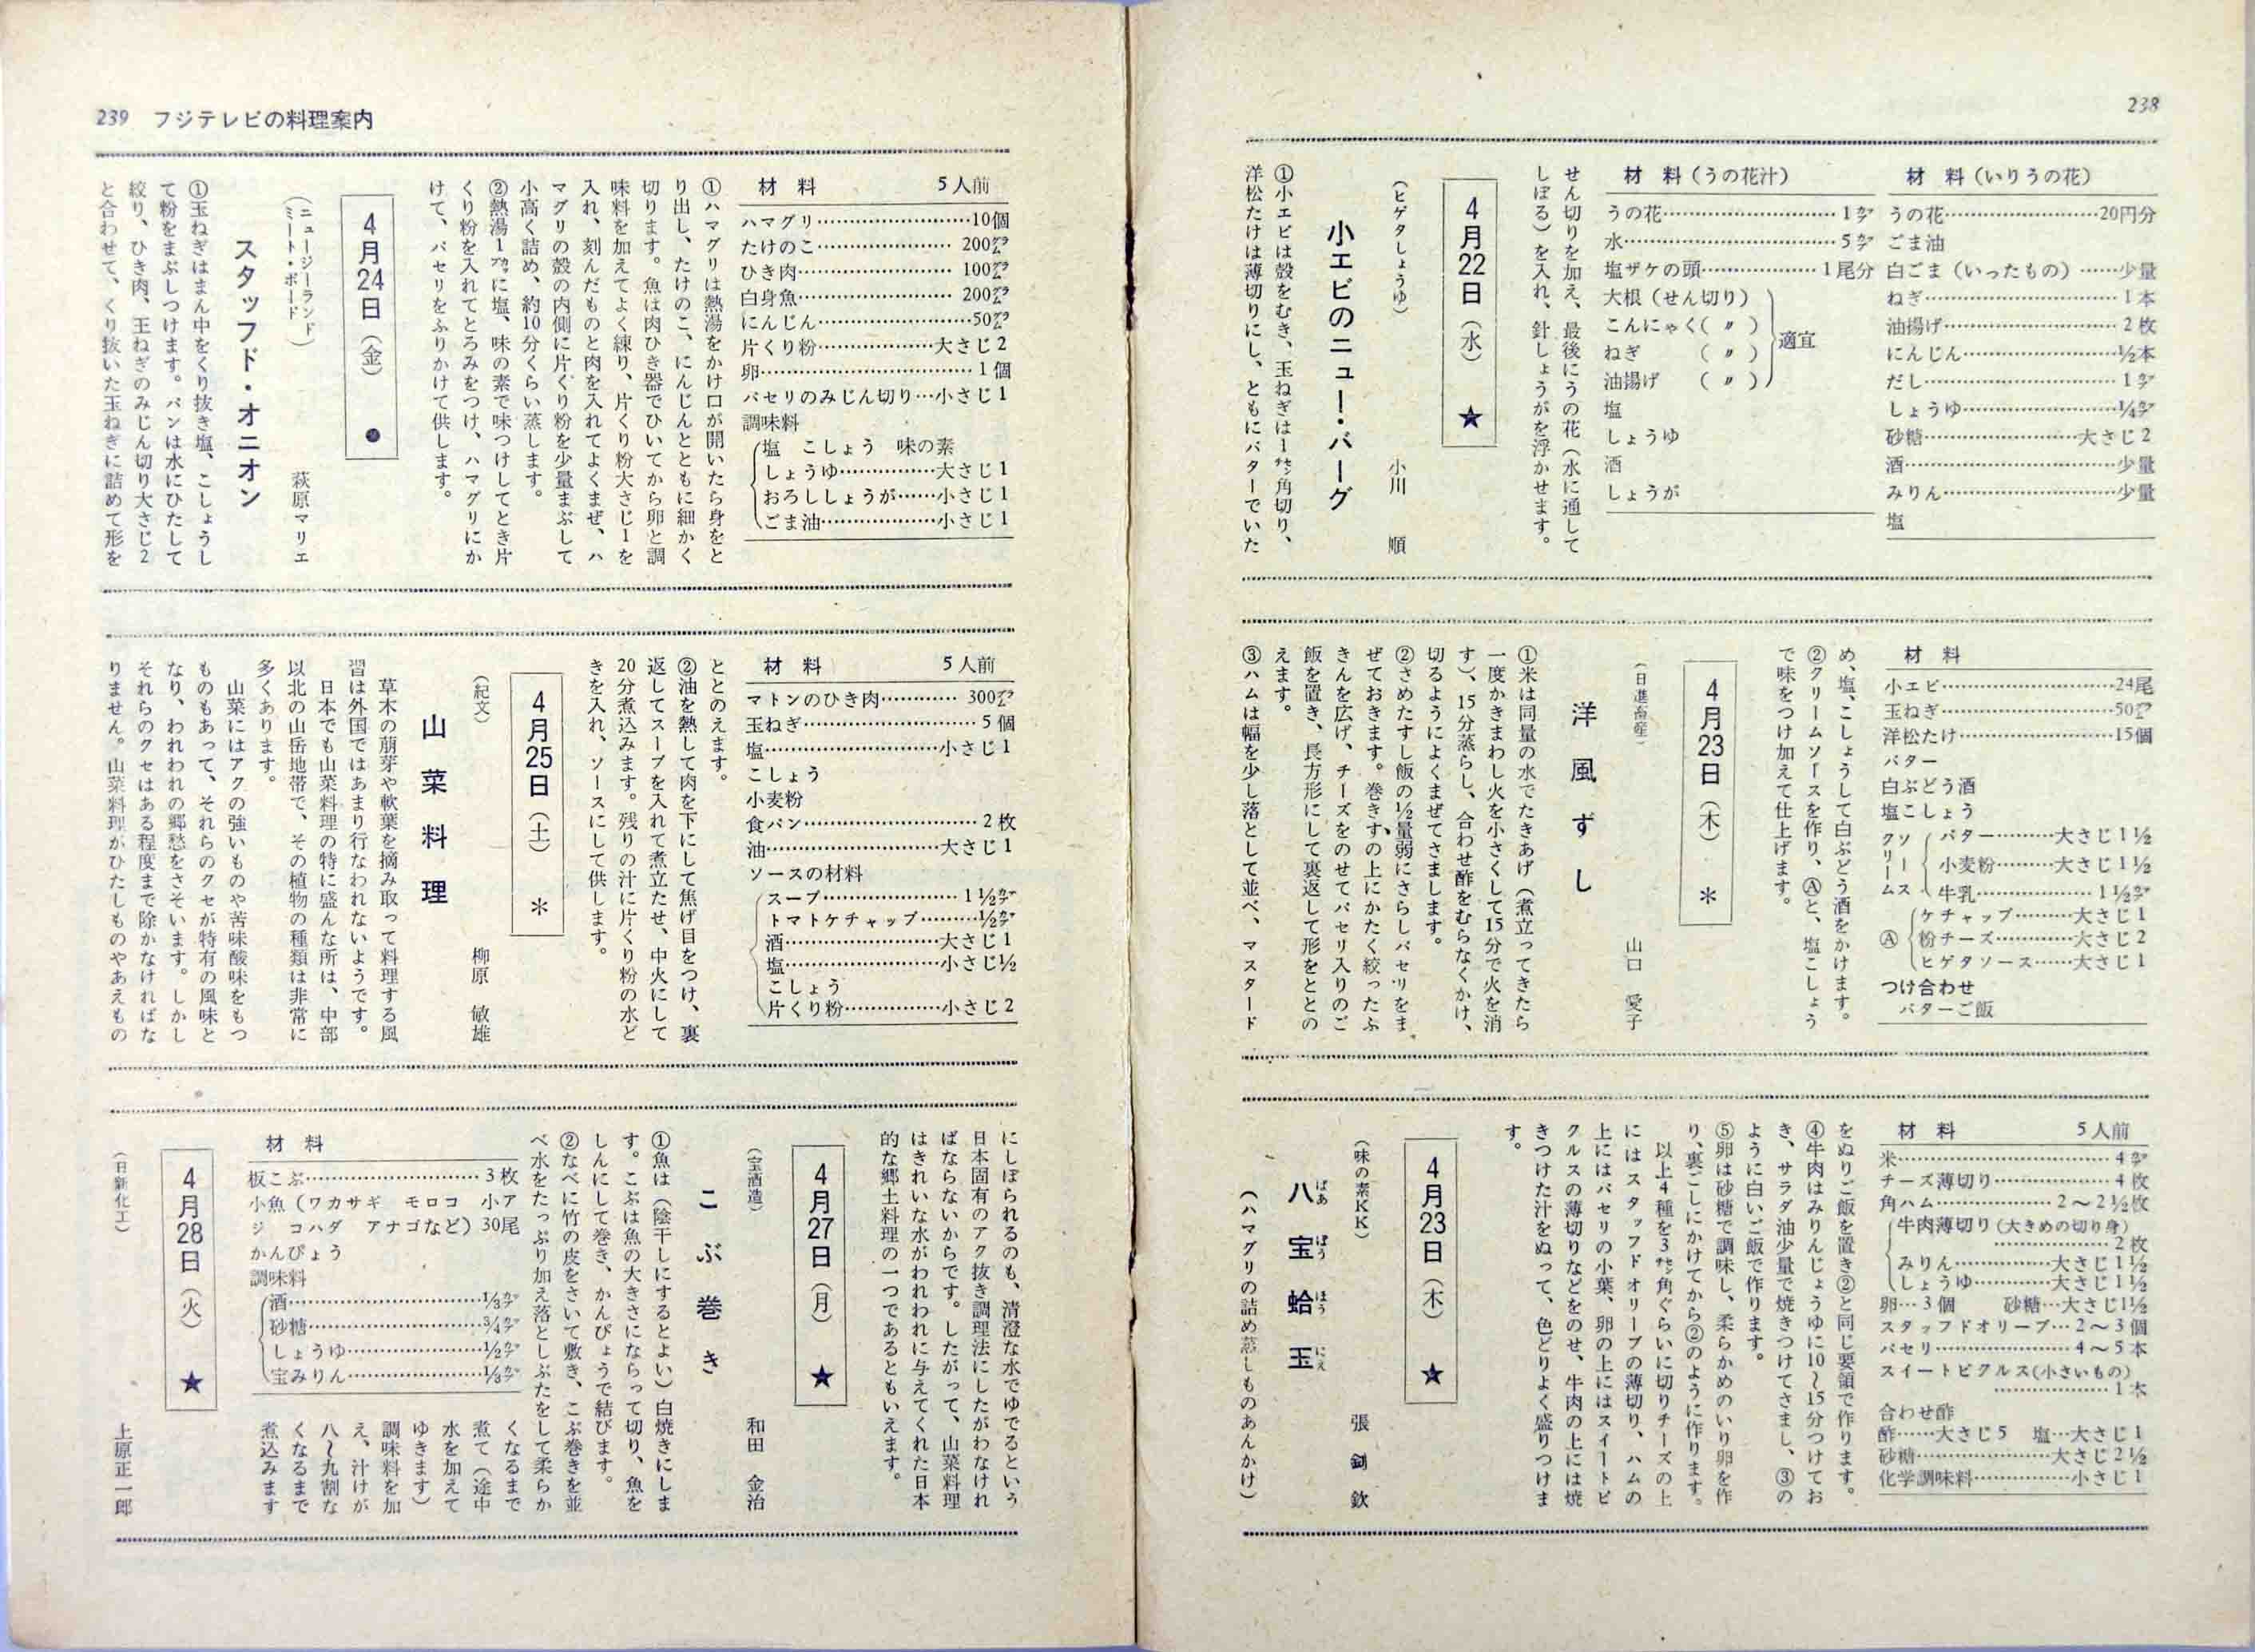 238
材　料（いりうの花）
うの花……………………20円分
ごま油
白ごま（いったもの）……少量
ねぎ……………………1本
油揚げ……………………2枚
にんじん……………………½本
だし……………………1カップ
しょうゆ……………………¼カップ
砂糖……………………大さじ2
酒……………………少量
みりん……………………少量
塩
材　料（うの花汁）
うの花……………………1カップ
水……………………5カップ
塩ザケの頭……………………1尾分
大根（せん切り）
こんにゃく（〃）
ねぎ（〃）
油揚げ（〃）
適宜
塩
しょうゆ
酒
しょうが
せん切りを加え、最後にうの花（水に通して
しぼる）を入れ、針しょうがを浮かせます。
4月22日（水）　★
（ヒゲタしょうゆ）　小川　順
小エビのニュー・バーグ
①小エビは殻をむき、玉ねぎは1センチ角切り、
洋松たけは薄切りにし、ともにバターでいた
材　料
小エビ……………………24尾
玉ねぎ……………………50グラム
洋松たけ……………………15個
バター
白ぶどう酒
塩こしょう
クリームソース
バター………大さじ1½
小麦粉………大さじ1½
牛乳……………1½カップ
Ⓐ
ケチャップ………大さじ1
粉チーズ…………大さじ2
ヒゲタソース……大さじ1
つけ合わせ
バターご飯
め、塩、こしょうして白ぶどう酒をかけます。
②クリームソースを作り、Ⓐと、塩こしょう
で味をつけ加えて仕上げます。
4月23日（木）　＊
（日進畜産）　山口　愛子
洋風ずし
①米は同量の水でたきあげ（煮立ってきたら
一度かきまわし火を小さくして15分で火を消
す）、15分蒸らし、合わせ酢をむらなくかけ、
切るようによくまぜてさまします。
②さめたすし飯の½量弱にさらしパセリをま
ぜておきます。巻きすの上にかたく絞ったふ
きんを広げ、チーズをのせてパセリ入りのご
飯を置き、長方形にして裏返して形をととの
えます。
③ハムは幅を少し落として並べ、マスタード
材　料　5人前
米……………………4カップ
チーズ薄切り……………………4枚
角ハム……………2〜2½枚
牛肉薄切り（大きめの切り身）
……………………2枚
みりん……………大さじ1½
しょうゆ…………大さじ1½
卵…3個　砂糖…大さじ1½
スタッフドオリーブ…2〜3個
パセリ……………………4〜5本
スイートピクルス（小さいもの）
……………………1本
合わせ酢
酢……大さじ5　塩…大さじ1
砂糖……………………大さじ2½
化学調味料……………小さじ1
をぬりご飯を置き②と同じ要領で作ります。
④牛肉はみりんじょうゆに10〜15分つけてお
き、サラダ油少量で焼きつけてさまし、③の
ように白いご飯で作ります。
⑤卵は砂糖で調味し、柔らかめのいり卵を作
り、裏ごしにかけてから②のように作ります。
以上4種を3センチ角ぐらいに切りチーズの上
にはスタッフドオリーブの薄切り、ハムの
上にはパセリの小葉、卵の上にはスイートピ
クルスの薄切りなどをのせ、牛肉の上には焼
きつけた汁をぬって、色どりよく盛りつけま
す。
4月23日（木）　★
（味の素KK）　張　釗　欽
八宝蛤玉
ばあ　ぼう　ほう　にえ
（ハマグリの詰め蒸しものあんかけ）
239　フジテレビの料理案内
材　料　5人前
ハマグリ……………………10個
たけのこ……………………200グラム
ひき肉……………………100グラム
白身魚……………………200グラム
にんじん……………………50グラム
片くり粉……………大さじ2
卵……………………1個
パセリのみじん切り…小さじ1
調味料
塩　こしょう　味の素
しょうゆ……………大さじ1
おろししょうが……小さじ1
ごま油………………小さじ1
①ハマグリは熱湯をかけ口が開いたら身をと
り出し、たけのこ、にんじんとともに細かく
切ります。魚は肉ひき器でひいてから卵と調
味料を加えてよく練り、片くり粉大さじ1を
入れ、刻んだものと肉を入れてよくまぜ、ハ
マグリの殻の内側に片くり粉を少量まぶして
小高く詰め、約10分くらい蒸します。
②熱湯1カップに塩、味の素で味つけしてとき片
くり粉を入れてとろみをつけ、ハマグリにか
けて、パセリをふりかけて供します。
4月24日（金）　●
（ニュージーランド・ミート・ボード）　萩原マリエ
スタッフド・オニオン
①玉ねぎはまん中をくり抜き塩、こしょうし
て粉をまぶしつけます。パンは水にひたして
絞り、ひき肉、玉ねぎのみじん切り大さじ2
と合わせて、くり抜いた玉ねぎに詰めて形を
材　料　5人前
マトンのひき肉…………300グラム
玉ねぎ……………………5個
塩……………………小さじ1
こしょう
小麦粉
食パン……………………2枚
油……………………大さじ1
ソースの材料
スープ……………………1½カップ
トマトケチャップ………½カップ
酒……………………大さじ1
塩……………………小さじ½
こしょう
片くり粉……………小さじ2
ととのえます。
②油を熱して肉を下にして焦げ目をつけ、裏
返してスープを入れて煮立たせ、中火にして
20分煮込みます。残りの汁に片くり粉の水ど
きを入れ、ソースにして供します。
4月25日（土）　＊
（紀文）　柳原　敏雄
山菜料理
草木の萠芽や軟葉を摘み取って料理する風
習は外国ではあまり行なわれないようです。
日本でも山菜料理の特に盛んな所は、中部
以北の山岳地帯で、その植物の種類は非常に
多くあります。
山菜にはアクの強いものや苦味酸味をもつ
ものもあって、それらのクセが特有の風味と
なり、われわれの郷愁をさそいます。しかし
それらのクセはある程度まで除かなければな
りません。山菜料理がひたしものやあえもの
にしぼられるのも、清澄な水でゆでるという
日本固有のアク抜き調理法にしたがわなけれ
ばならないからです。したがって、山菜料理
はきれいな水がわれわれに与えてくれた日本
的な郷土料理の一つであるともいえます。
4月27日（月）　★
（宝酒造）　和田　金治
こぶ巻き
①魚は（陰干しにするとよい）白焼きにしま
す。こぶは魚の大きさにならって切り、魚を
しんにして巻き、かんぴょうで結びます。
②なべに竹の皮をさいて敷き、こぶ巻きを並
べ水をたっぷり加え落としぶたをして柔らか
くなるまで
煮て（途中
水を加えて
ゆきます）
調味料を加
え、汁けが
八〜九割な
くなるまで
煮込みます
材　料
板こぶ……………………3枚
小魚（ワカサギ　モロコ　小ア
ジ　コハダ　アナゴなど）30尾
かんぴょう
調味料
酒……………………⅓カップ
砂糖……………………¾カップ
しょうゆ……………………½カップ
宝みりん……………………⅓カップ
4月28日（火）　★
（日新化工）　上原正一郎